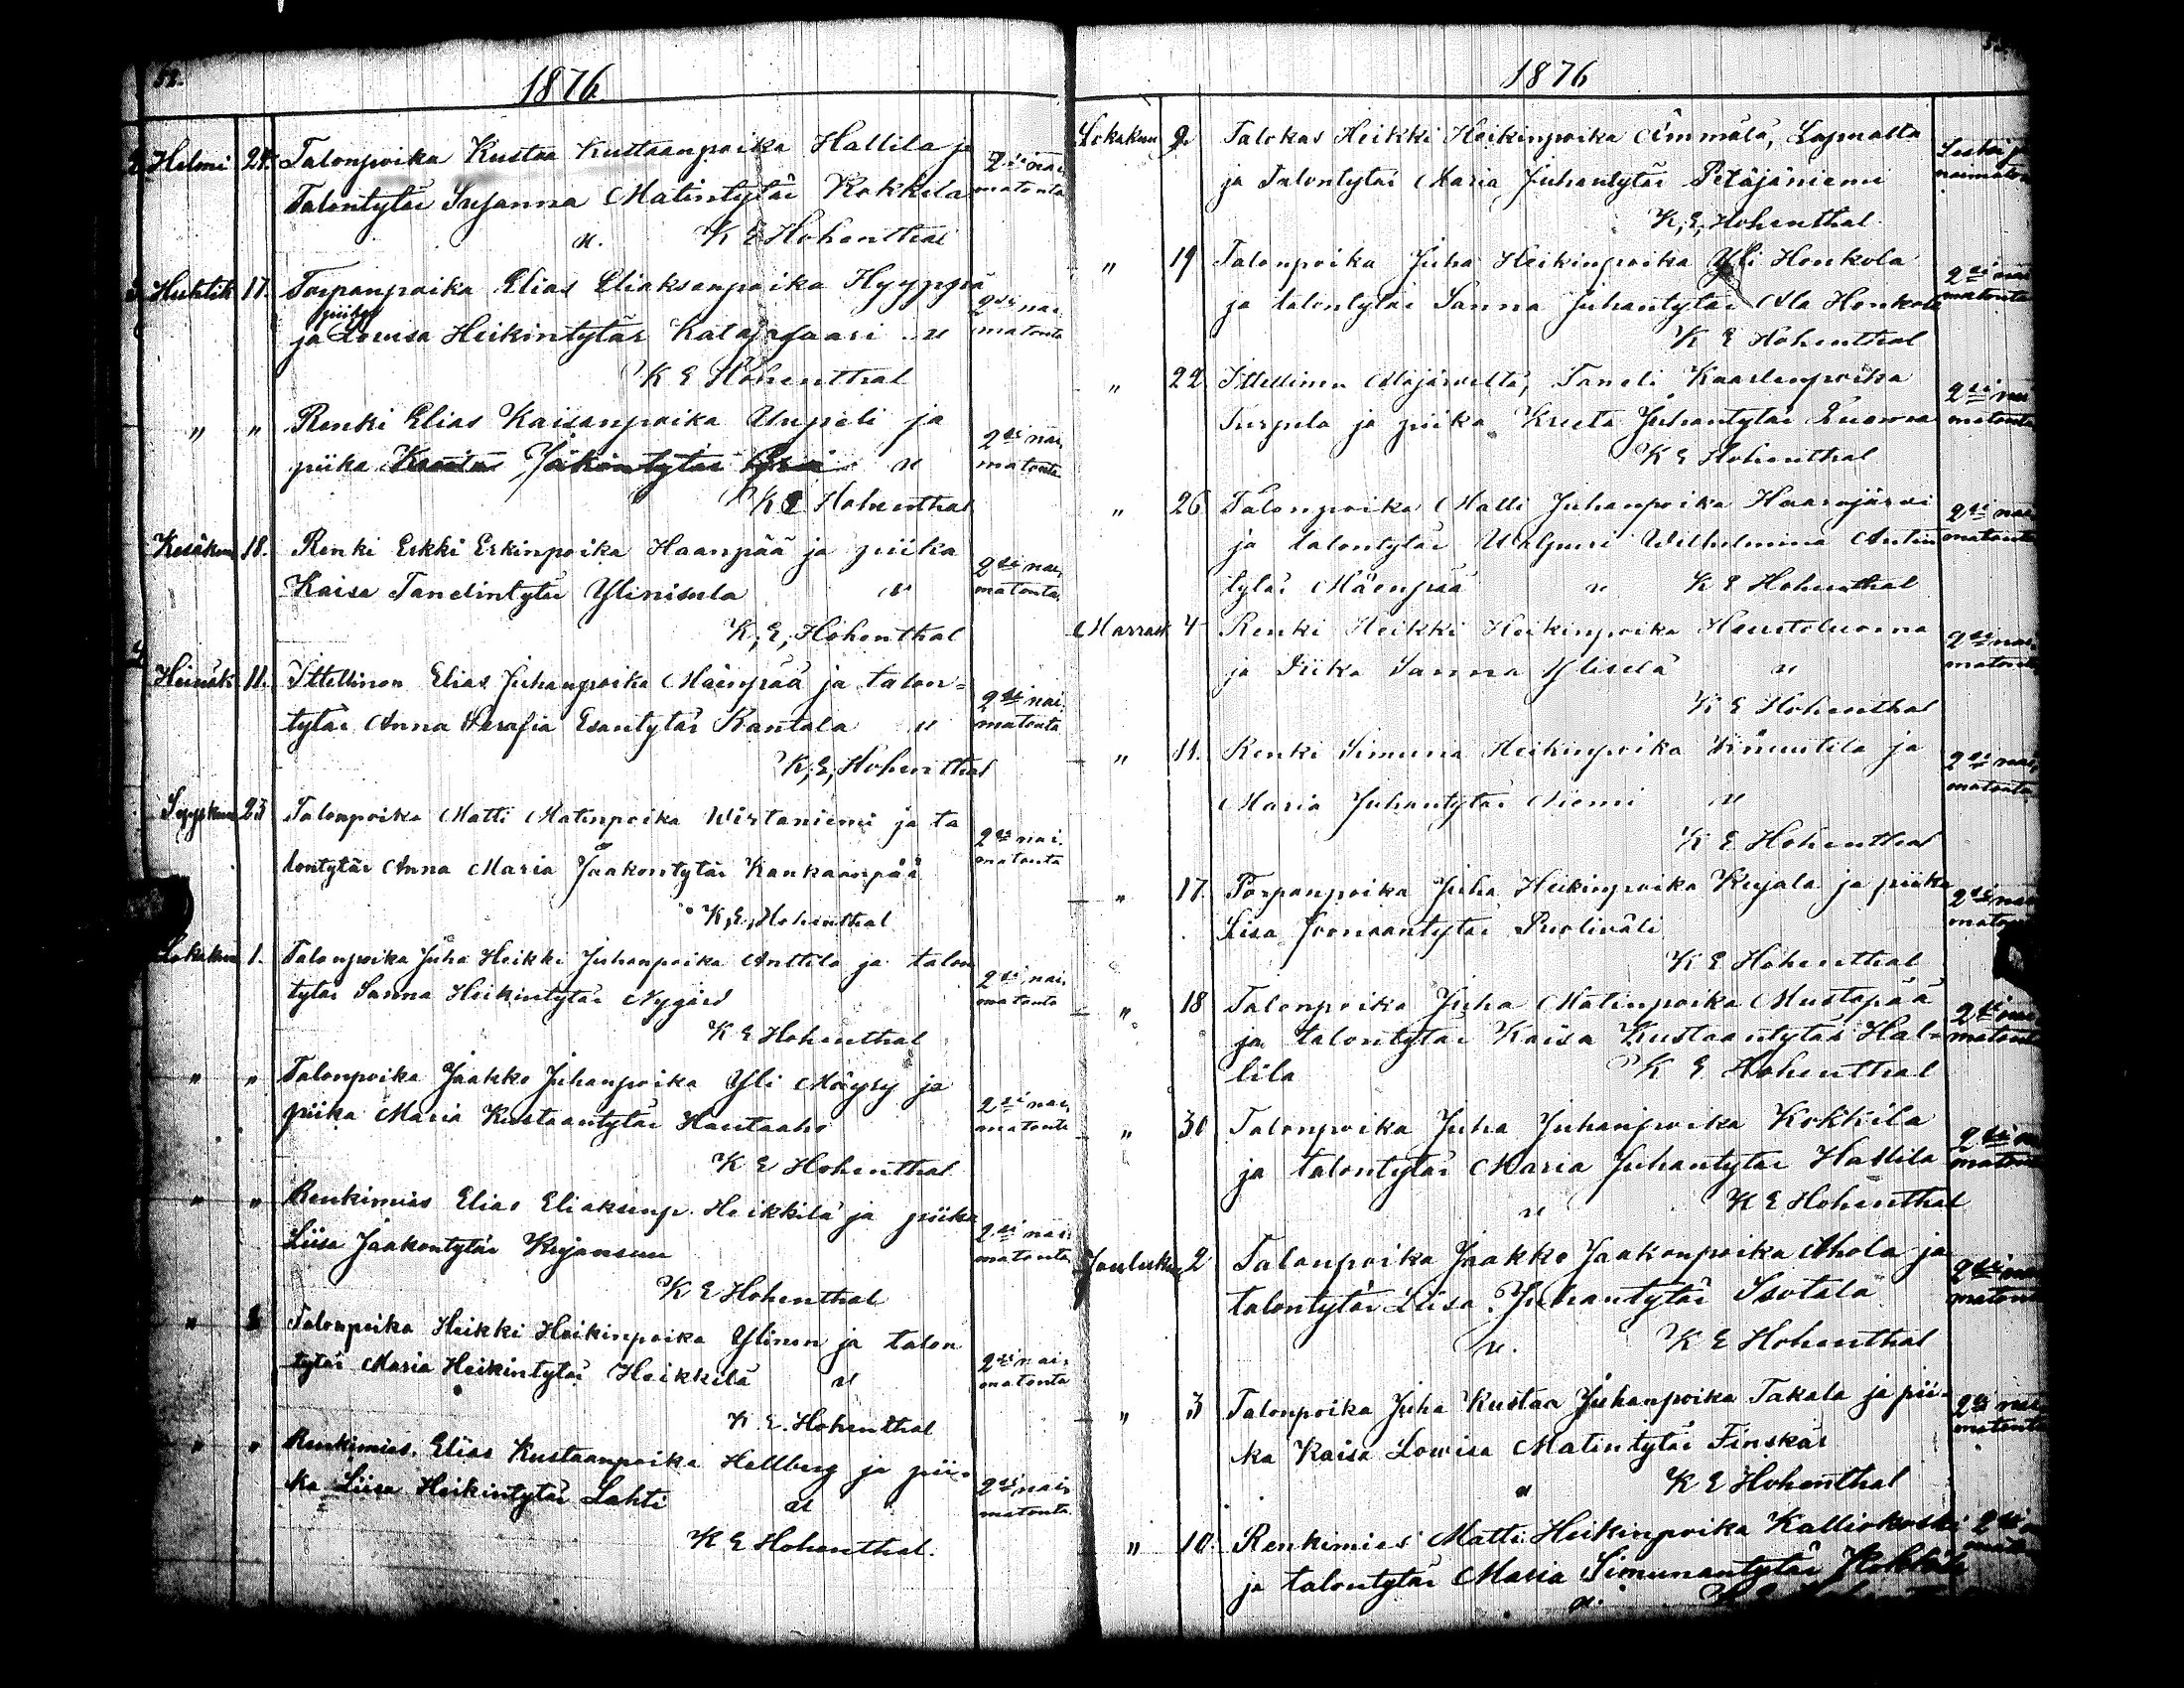 52.
1876
Helmi 24. Talonpoika Kustaa Kustaanpoika Hallila ja
Talontytär Susanna Matintytär Kokkila
2si nai,
matonta
u. K E Hohenthal
Huhtik 17. Torpanpoika Elias Eliaksenpoika Hyyppä
piika
ja Lovisa Heikintytär Katajasaari u
2si nai,
matonta
K E Hohenthal
" " Renki Elias Kaisanpoika Umpeli ja
piika Jaakontytär u
2si nai,
matonta
K E Hohenthal
Kesäkuu 18. Renki Erkki Erkinpoika Haanpää ja piika
Kaisa Tanelintytär Ylinisula u
2si nai,
matonta
K, E, Hohenthal
Heinäk 11. Ittellinen Elias Juhanpoika Mäenpää ja talon=
tytär Anna Serafia Esantytär Rantala u
2si nai.
matonta
K, E, Hohenthal
Syyskuu 23 Talonpoika Matti Matinpoika Wirtaniemi ja ta
lontytär Anna Maria Jaakontytär Kankaanpää
2si nai.
matonta
K, E, Hohenthal
Lokakuu 1. Talonpoika Juha Heikki Juhanpoika Anttila ja talon
tytär Sanna Heikintytär Nygård
2si nai.
matonta
K E Hohenthal
" " Talonpoika Jaakko Juhanpoika Yli Mäyry ja
piika Maria Kustaantytär Hautaaho
2si nai,
matonta
K E Hohenthal
" " Renkimies Elias Eliaksenp. Heikkilä ja piika
Liisa Jaakontytär Kujansuu
2si nai,
matonta
K E Hohenthal
" Talonpoika Heikki Heikinpoika Ylinen ja talon
tytär Maria Heikintytär Heikkilä u
2si nai,
matonta
K. E. Hohenthal
" " Renkimies. Elias Kustaanpoika Hellberg ja pii-
ka Liisa Heikintytär Lahti u
2si nai,
matonta.
K E Hohenthal.
1876
Lokakuu 9. Talokas Heikki Heikinpoika Ämmälä, Lapualta
ja Talontytär Maria Juhantytär Petäjäniemi
Leski ja
naimaton
K, E, Hohenthal
" 19 Talonpoika Juha Heikinpoika Yli Honkola
ja talontytär Sanna Juhantytär Ala Honkola
2si nai
matonta
K E Hohenthal
" 22 Ittellinen Alajärveltä, Taneli Kaarlenpoika
Turpela ja piika Kreeta Juhantytär Luoma
2si nai
matonta
K E Hohenthal
" 26 Talonpoika Matti Juhanpoika Haarajärvi
ja talontytär Walpuri Wilhelmina Antin
tytär Mäenpää u K E Hohenthal
2si nai
matonta
Marrask 4 Renki Heikki Heikinpoika Hautoluoma
ja Piika Sanna Yliselä u
2si nai.
matonta
K E Hohenthal
" 11. Renki Simuna Heikinpoika Knuutila ja
Maria Juhantytär Niemi u
2si nai,
matonta
K E Hohenthal
" 17. Torpanpoika Juha Heikinpoika Kujala ja piika
Liisa Joonaantytär Puoliväli
2si nai
K E Hohenthal
" 18 Talonpoika Juha Matinpoika Mustapää
ja talontytär Kaisa Kustaantytär Hal-
lila K E Hohenthal
2si nai,
matonta
" 30 Talonpoika Juha Juhanpoika Kokkila
ja talontytär Maria Juhantytär Hallila
u K E Hohenthal
Joulukuu 2 Talonpoika Jaakko Jaakonpoika Ahola ja
talontytär Liisa Juhantytär Isotala
u. K E Hohenthal
" 3 Talonpoika Juha Kustaa Juhanpoika Takala ja pii-
ka Kaisa Lowisa Matintytär Finskas
2si nai
matonta
u K E Hohenthal
" 10. Renkimies Matti Heikinpoika Kalliokoski
ja talontytär Maria Simunantytär Kokkila
u.